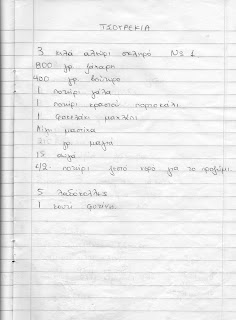 ΤΣΟΥΡΕΚΙΑ
3 κιλά αλεύρι σκληρό Νο 1
800 γρ. ζάχαρη
400 γρ. βούτυρο
1 ποτήρι γάλα
1 ποτήρι κρασιού πορτοκάλι
1 φακελάκι μαχλέπι
μαστίχα
γρ. μαγιά
15 αυγά
1/2 ποτήρι ζεστό νερό για το προζύμι
5 λαδόκολλες
1 κουτί